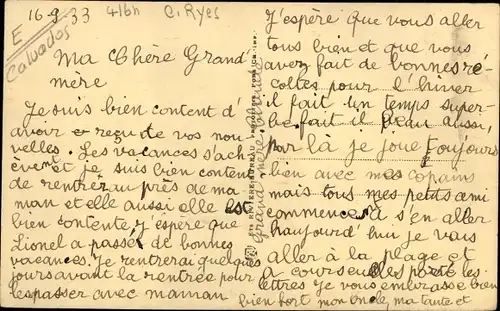 16-9 33
416h
C. Ryes
E
Calvados
Ma Chère Grand'
mère
Je suis bien content d'
avoir reçu de vos nou
velles. Les vacances s'ach
èvent et je suis bien content
de rentrer au près de ma
man et elle aussi elle est
bien contente j'espère que
Lionel a passé de bonnes
vacances. Je rentrerai quelques
jours avant la rentrée pour
les passer avec maman
J'espère que vous aller
tous bien et que vous
avez fait de bonnes ré
coltes pour l'hiver
il fait un temps super
be fait il beau aussi,
par là je joue toujours
bien avec mes copains
mais tous mes petits ami
commence à s'en aller
haujourd'hui je vais
aller à la plage et
a courseulles porte les
lettres Je vous embrasse bien
bien fort mon oncle, ma tante et
grand mère